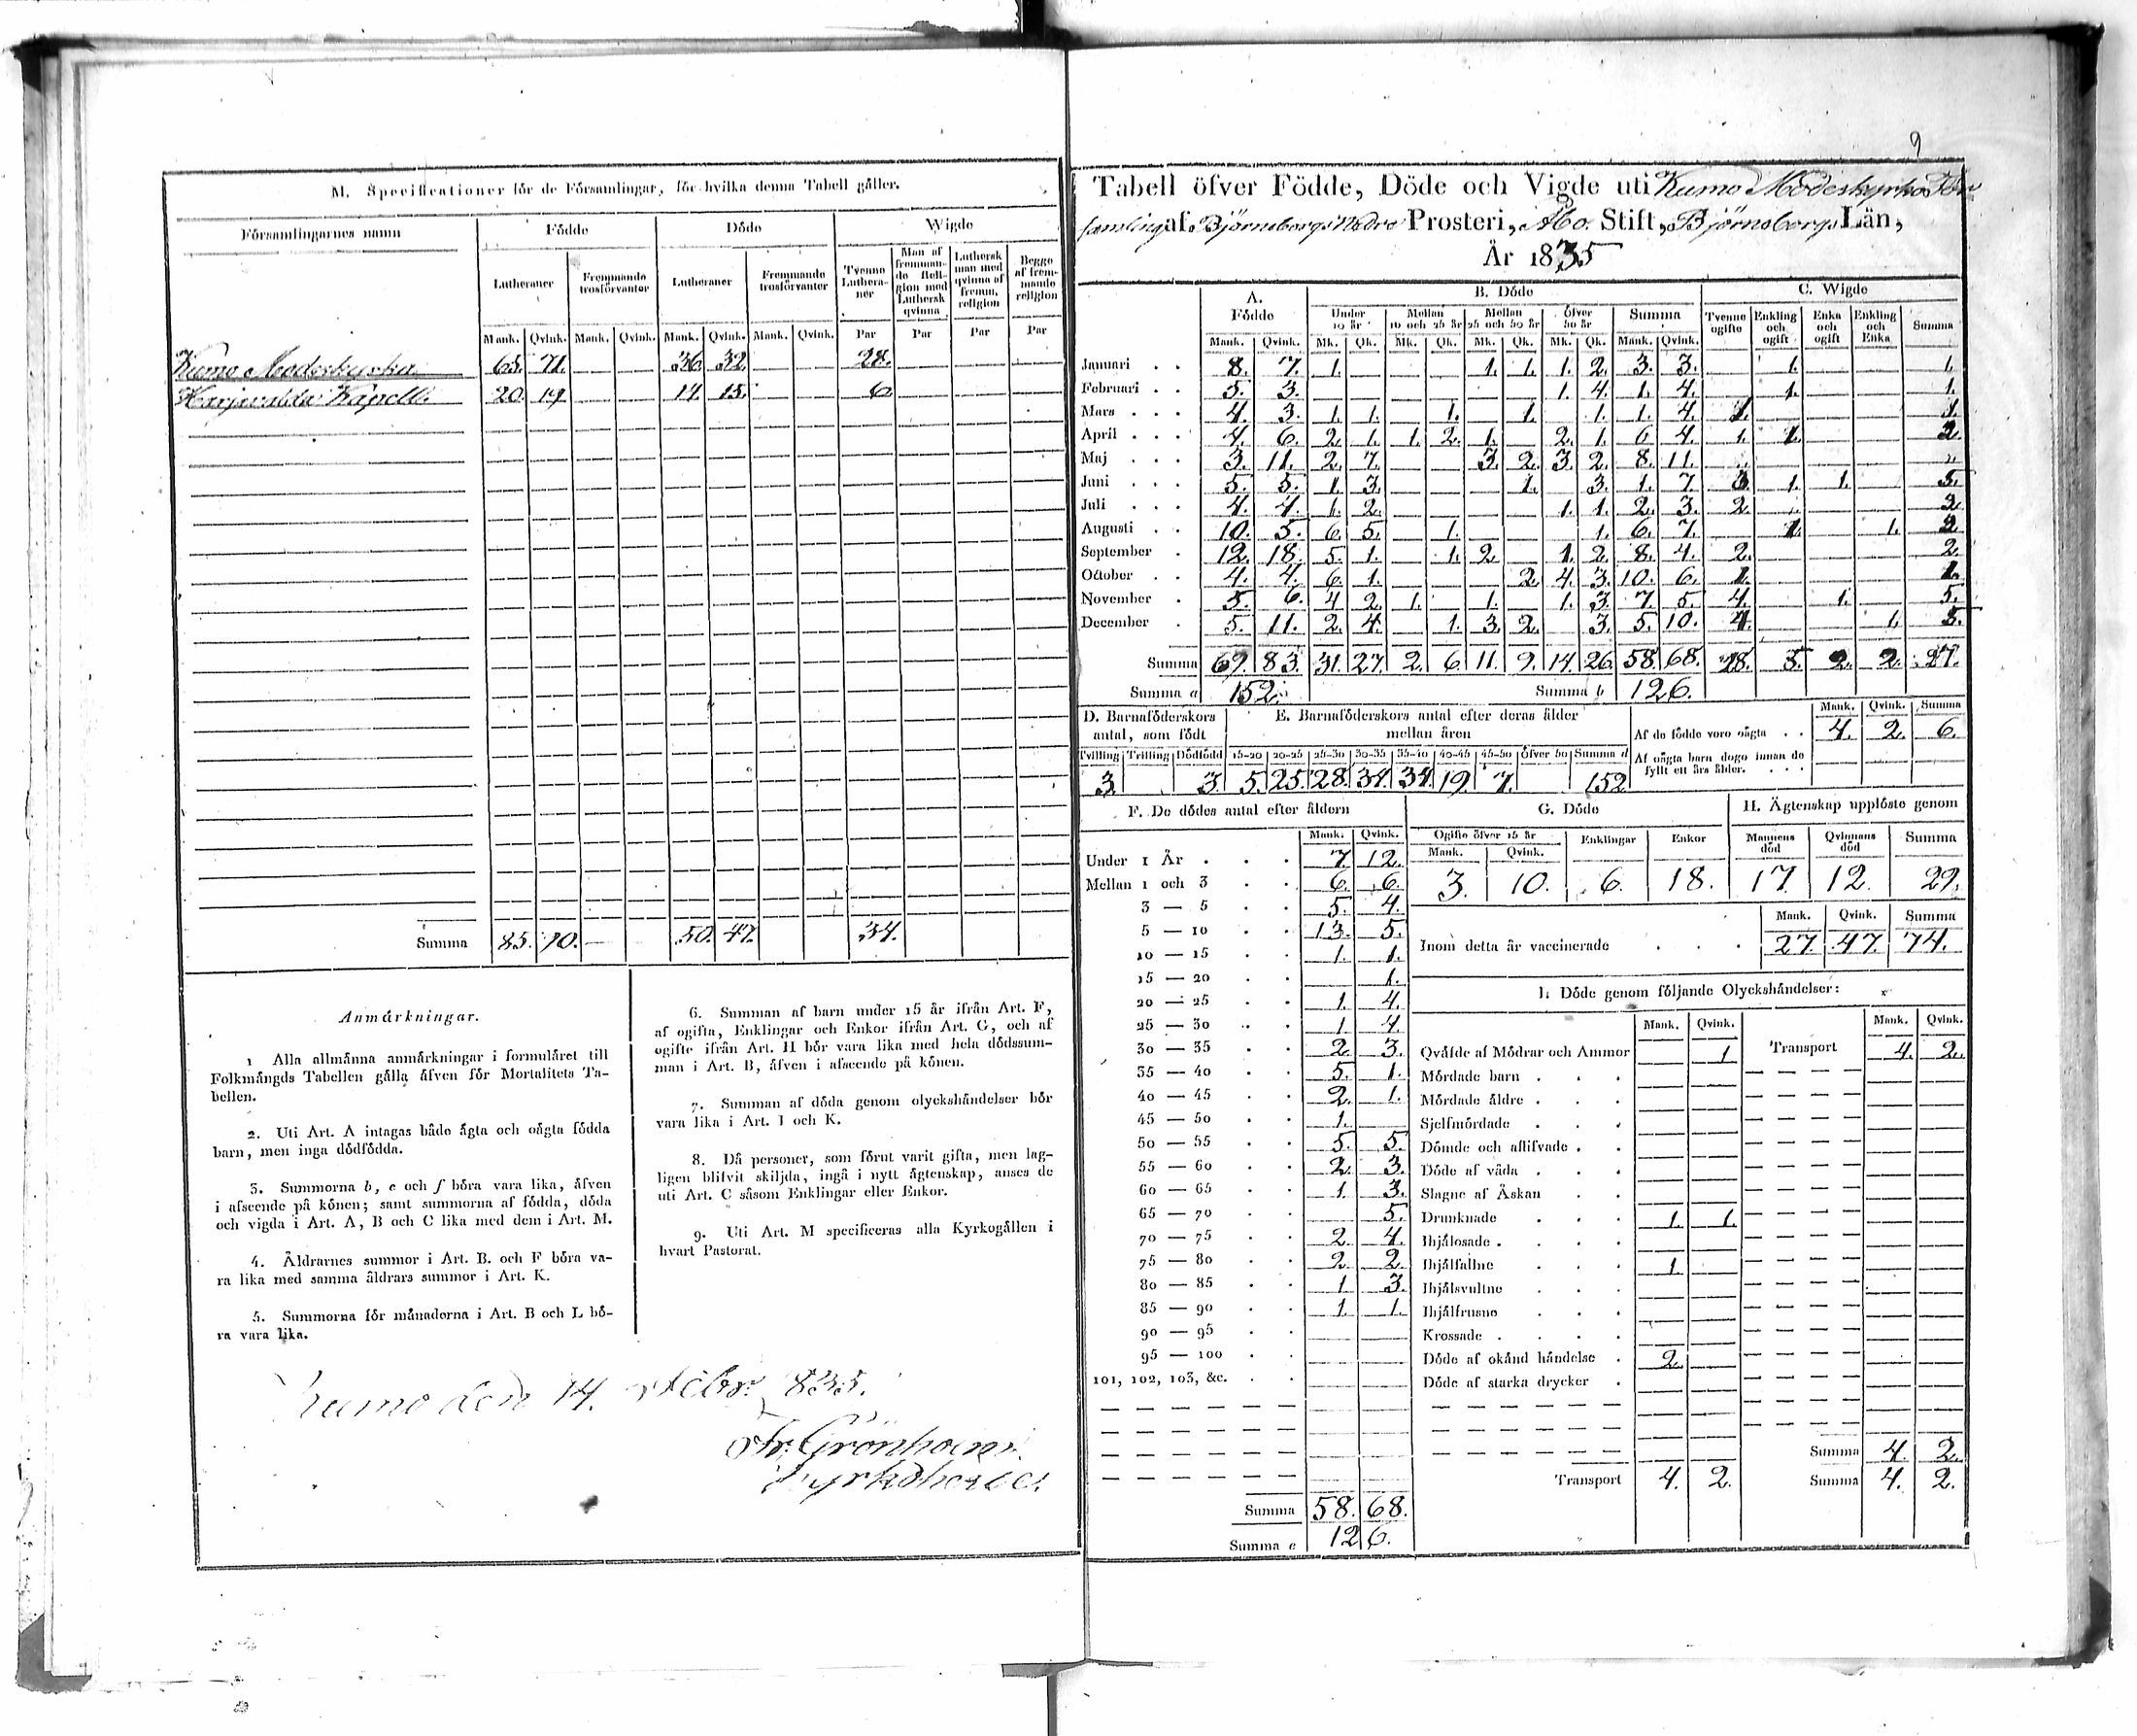 M. Specificationer för de Församlingar, för hvilka denna Tabell gäller.
Församlingarnes namn Födde Döde Wigde
Lutheraner Fremmande trosförvanter Lutheraner Fremmande trosförvanter Tvenne Lutheraner Man af fremmande Religion med Luthersk qvinna Luthersk man med qvinna af fremm. religion Begge af fremmande religion
Mank. Qvink. Mank. Qvink. Mank. Qvink. Mank. Qvink. Par Par Par Par
Kumo Moderkyrka 65. 71. 36. 32. 28.
Harjavalda Kapell. 20. 19 14. 15. 6.
Summa 85. 90. 50. 47. 34.
Anmärkningar.
1 Alla allmänna anmärkningar i formuläret till
Folkmängds Tabellen gälla äfven för Mortalitets Ta-
bellen.
2. Uti Art. A intagas både ägta och oägta födda
barn, men inga dödfödda.
3. Summorna b, e och f böra vara lika, äfven
i afseende på könen; samt summorna af födda, döda
och vigda i Art. A, B och C lika med dem i Art. M.
4. Åldrarnes summor i Art. B. och F böra va-
ra lika med samma åldrars summor i Art. K.
5. Summorna för månaderna i Art. B och L bö-
ra vara lika.
6. Summan af barn under 15 år ifrån Art. F,
af ogifta, Enklingar och Enkor ifrån Art. G, och af
ogifte ifrån Art. H bör vara lika med hela dödssum-
man i Art. B, äfven i afseende på könen.
7. Summan af döda genom olyckshändelser bör
vara lika i Art. I och K.
8. Då personer, som förut varit gifta, men lag-
ligen blifvit skiljda, ingå i nytt ägtenskap, anses de
uti Art. C såsom Enklingar eller Enkor.
9. Uti Art. M specificeras alla Kyrkogällen i
hvart Pastorat.
Kumo den 14. 835.
Fr. Grönholm.
Kyrkoherde.
9
Tabell öfver Födde, Döde och Vigde uti Kumo Moderkyrko För
samling af Björneborgs Nedre Prosteri, Åbo Stift, Björneborgs Län,
År 1835
A. Födde B. Döde C. Wigde
Under 10 år Mellan 10 och 25 år Mellan 25 och 50 år Öfver 50 år Summa Tvenne ogifte Enkling och ogift Enka och ogift Enkling och Enka Summa
Mank. Qvink. Mk. Qk. Mk. Qk. Mk. Qk. Mk. Qk. Mank. Qvink.
Januari 8. 7. 1. 1. 1. 1. 2. 3. 3. 1. 1.
Februari 5. 3. 1. 4. 1. 4. 1. 1.
Mars 4. 3. 1. 1. 1. 1. 1. 1. 4. 1. 1.
April 4. 6. 2. 1. 1. 2. 1. 2. 1. 6. 4. 1. 1. 2.
Maj 3. 11. 2. 7. 3. 2. 3. 2. 8. 11. „ „
Juni 5. 5. 1. 3. 1. 3. 1. 7. 3. 1. 1. 5.
Juli 4. 4. 1. 2. 1. 1. 2. 3. 2. 2.
Augusti 10. 5. 6. 5. 1. 1. 6. 7. 1. 1. 2.
September 12. 18. 5. 1. 1. 2. 1. 2. 8. 4. 2. 2.
October 4. 4. 6. 1. 2. 4. 3. 10. 6. 1. 1.
November 5. 6. 4. 2. 1. 1. 1. 3. 7. 5. 4. 1. 5.
December 5. 11. 2. 4. 1. 3. 2. 3. 5. 10. 4. 1. 5.
Summa 69. 83. 31. 27. 2. 6. 11. 9. 14. 26. 58. 68. 18. 5. 2. 2. 27.
Summa a 152. Summa b 126.
D. Barnaföderskors antal, som födt
E. Barnaföderskors antal efter deras ålder mellan åren
Mank. Qvink. Summa
Af de födde voro oägta 4. 2. 6.
Tvilling Trilling Dödfödd 15-20 20-25 25-30 30-35 35-40 40-45 45-50 Öfver 50 Summa d
Af oägta barn dogo innan de fyllt ett års ålder.
3. 3. 5. 25. 28. 34. 34. 19. 7. 152
F. De dödes antal efter åldern
Mank. Qvink.
Under 1 År 7. 12.
Mellan 1 och 3 6. 6.
3 — 5 5. 4.
5 — 10 13. 5.
10 — 15 1. 1.
15 — 20 1.
20 — 25 1. 4.
25 — 30 1. 4.
30 — 35 2. 3.
35 — 40 5. 1.
40 — 45 2. 1.
45 — 50 1.
50 — 55 5. 5.
55 — 60 2. 3.
60 — 65 1. 3.
65 — 70 5.
70 — 75 2. 4.
75 — 80 2. 2.
80 — 85 1 3.
85 — 90 1. 1.
90 — 95
95 — 100
101, 102, 103, &c.
Summa 58. 68.
Summa e 126.
G. Döde
Ogifte öfver 15 år Enklingar Enkor
Mank. Qvink.
3. 10. 6. 18.
H. Ägtenskap upplöste genom
Mannens död Qvinnans död Summa
17 12. 29.
Mank. Qvink. Summa
Inom detta år vaccinerade 27. 47. 74.
I. Döde genom följande Olyckshändelser:
Mank. Qvink. Mank. Qvink.
Qväfde af Mödrar och Ammor 1 Transport 4. 2.
Mördade barn
Mördade äldre
Sjelfmördade
Dömde och aflifvade
Döde af våda
Slagne af Åskan
Drunknade 1. 1.
Ihjälosade
Ihjälfallne 1.
Ihjälsvultne
Ihjälfrusne
Krossade
Döde af okänd händelse 2.
Döde af starka drycker
Summa 4. 2.
Transport 4. 2. Summa 4. 2.